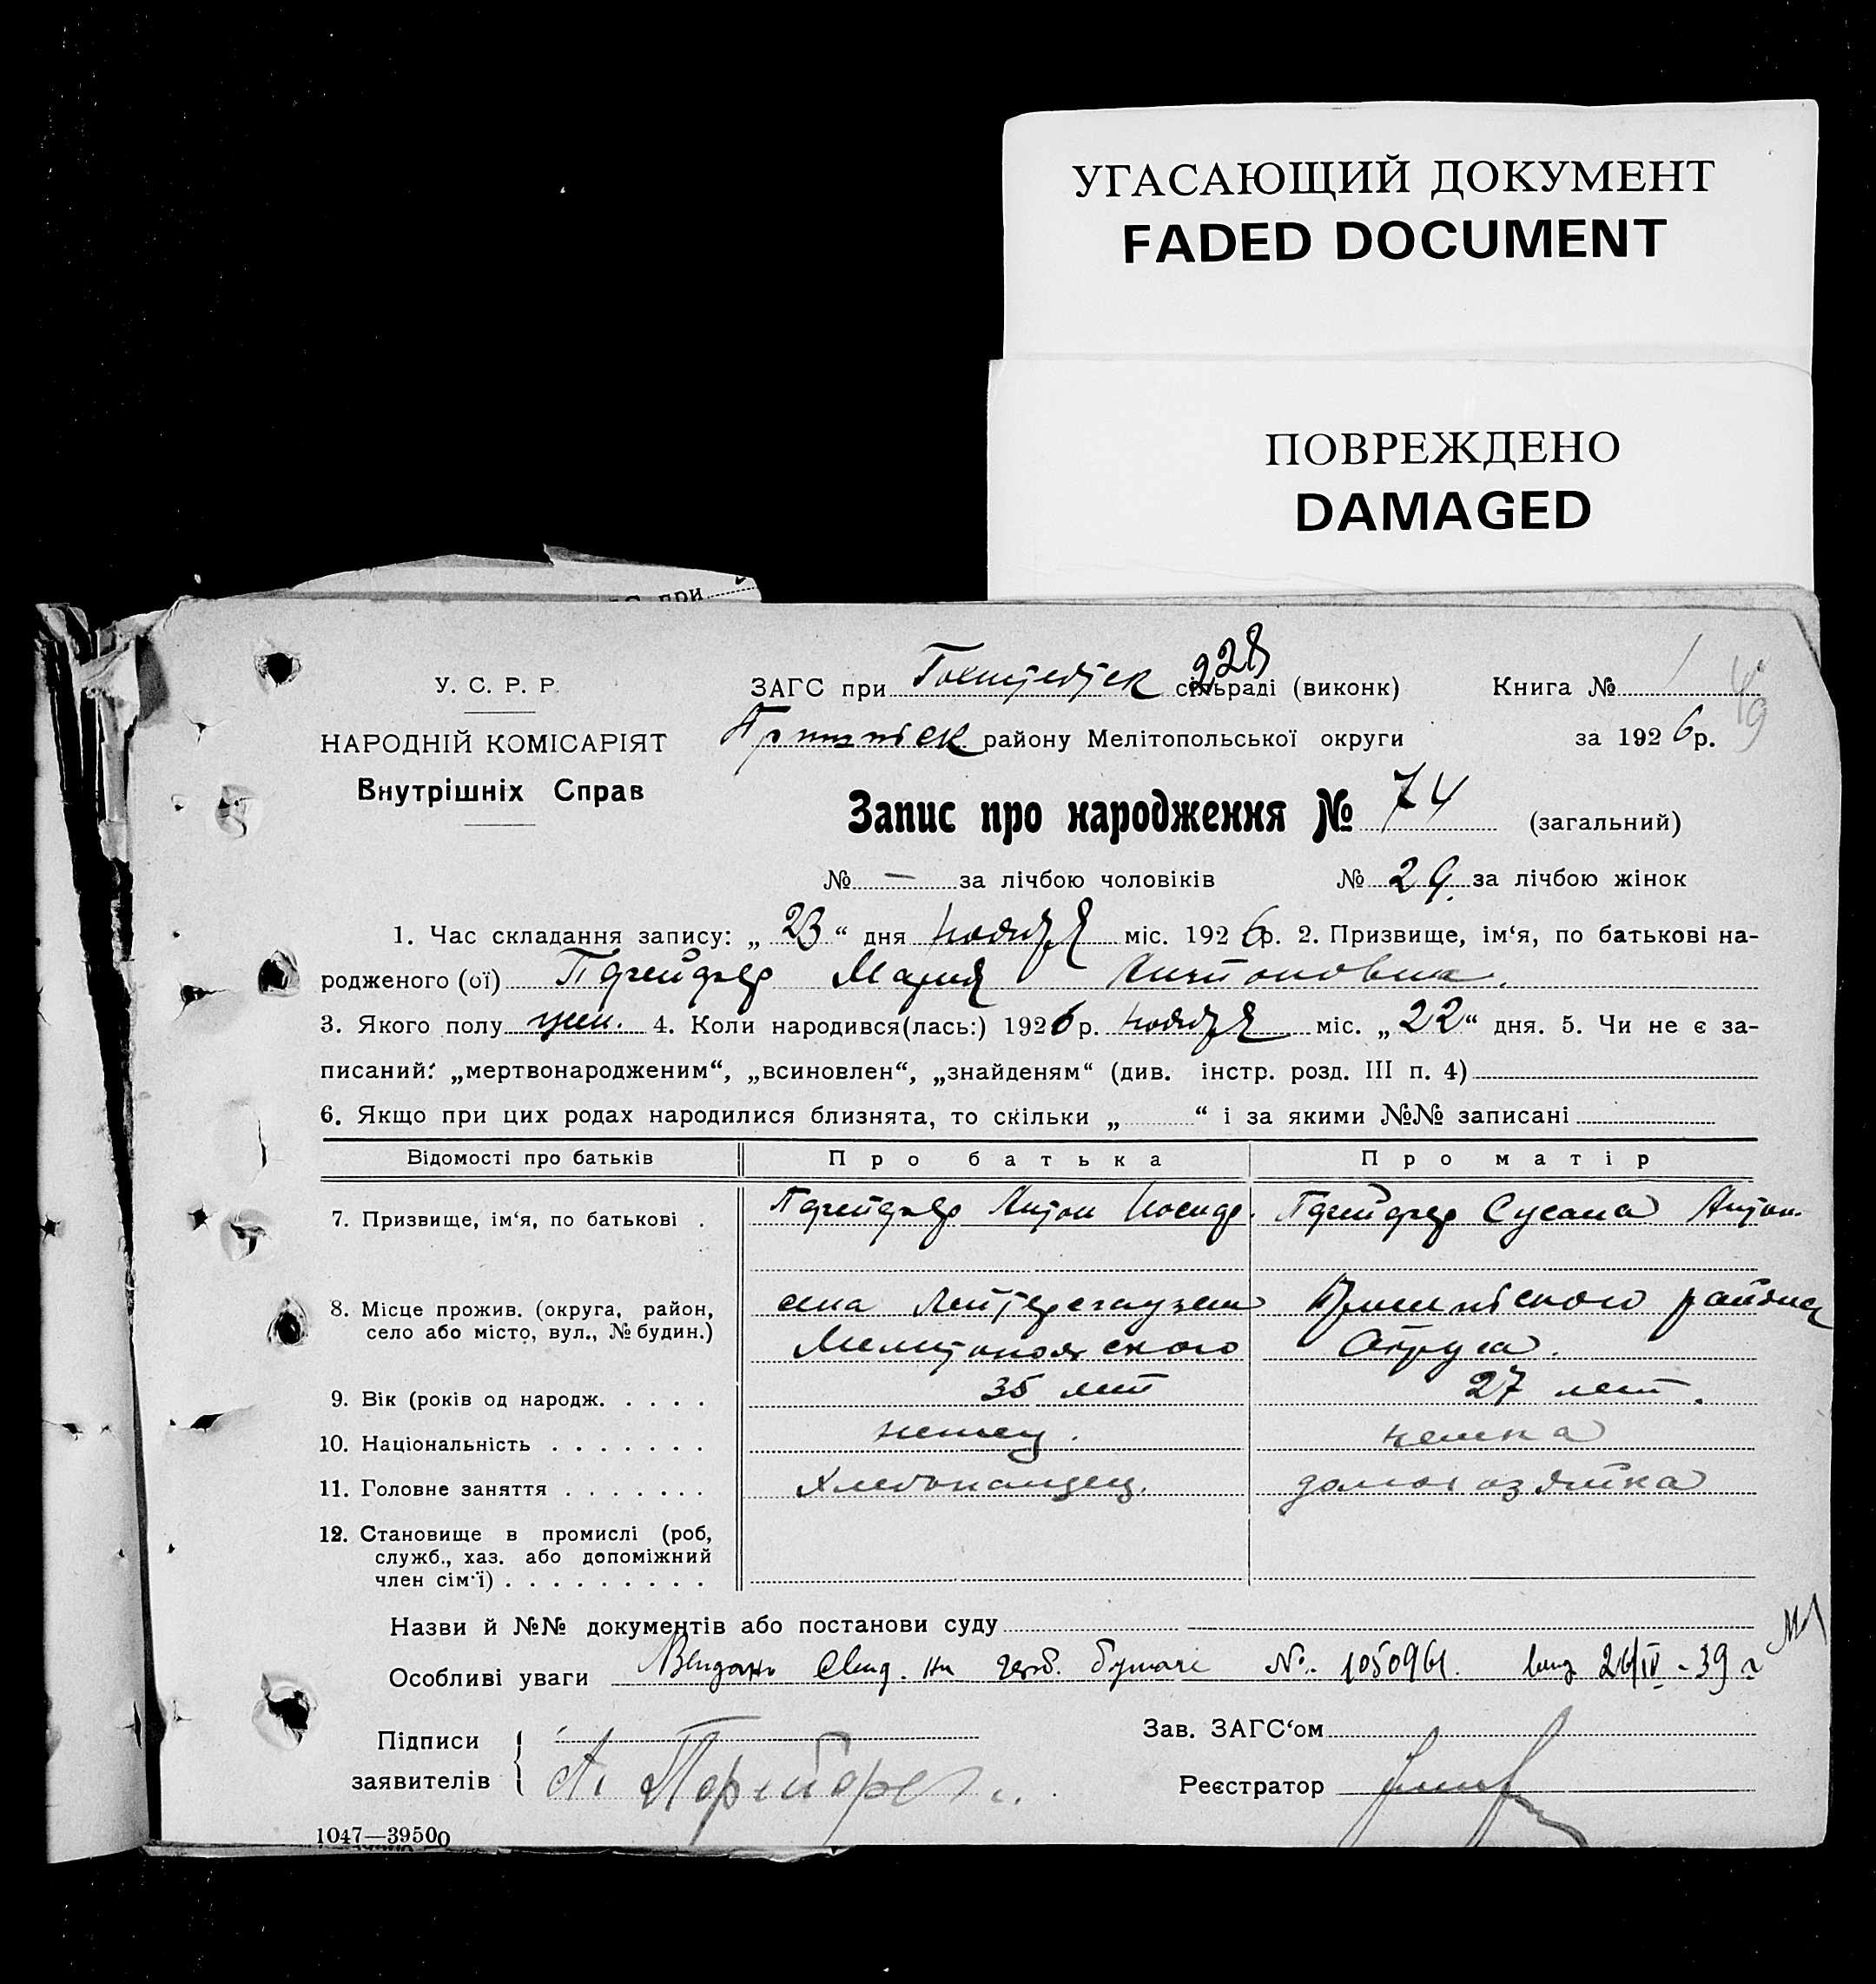 УГАСАЮЩИЙ ДОКУМЕНТ
FADED DOCUMENT
ПОВРЕЖДЕНО
DAMAGED
при
228
У. С. Р. Р.
ЗАГС при сільраді (виконк) Книга № 1
49
НАРОДНІЙ КОМІСАРІЯТ
району Мелітопольської округи за 1926р.
Внутрішніх Справ
Запис про народження № 74 (загальний)
№ — за лічбою чоловіків № 29. за лічбою жінок
1. Час складання запису: „23“ дня ноября міс. 1926р. 2. Призвище, ім‘я, по батькові на-
родженого (ої) Пфейфер Мария Антоновна.
3. Якого полу жен. 4. Коли народився(лась:) 1926р. ноября міс. „22“ дня. 5. Чи не є за-
писаний: „мертвонародженим“, „всиновлен“, „знайденям“ (див. інстр. розд. III п. 4)
6. Якщо при цих родах народилися близнята, то скільки „ “ і за якими №№ записані
Відомості про батьків Про батька Про матір
7. Призвище, ім‘я, по батькові . Пфейфер Антон Иосиф. Пфейфер Сусана Антон.
8. Місце прожив. (округа, район,
село або місто, вул., № будин.)
села района
Мелитопольского Округа.
9. Вік (років од народж. . . . . 35 лет 27 лет.
10. Національність . . . . . . . немец. немка
11. Головне заняття . . . . . . . Хлебопашец. домохозяйка
12. Становище в промислі (роб,
служб., хаз. або допоміжний
член сім‘ї) . . . . . . . . .
Назви й №№ документів або постанови суду
Особливі уваги Выдано свид. на герб. бумаге № 1050961. 26/IV-39 г
Підписи
заявителів
А. Пфейфер
Зав. ЗАГС‘ом
Реєстратор
1047—39500